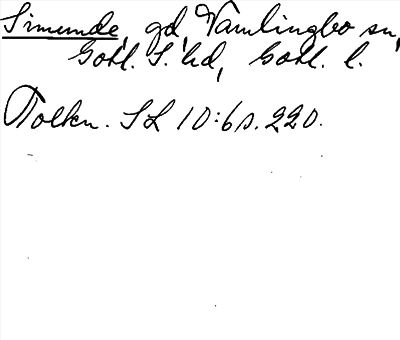 Simunde, gd, Vamlingbo sn,
Gotl. S. hd, Gotl. l.
Tolkn. SL 10:6 s. 220.